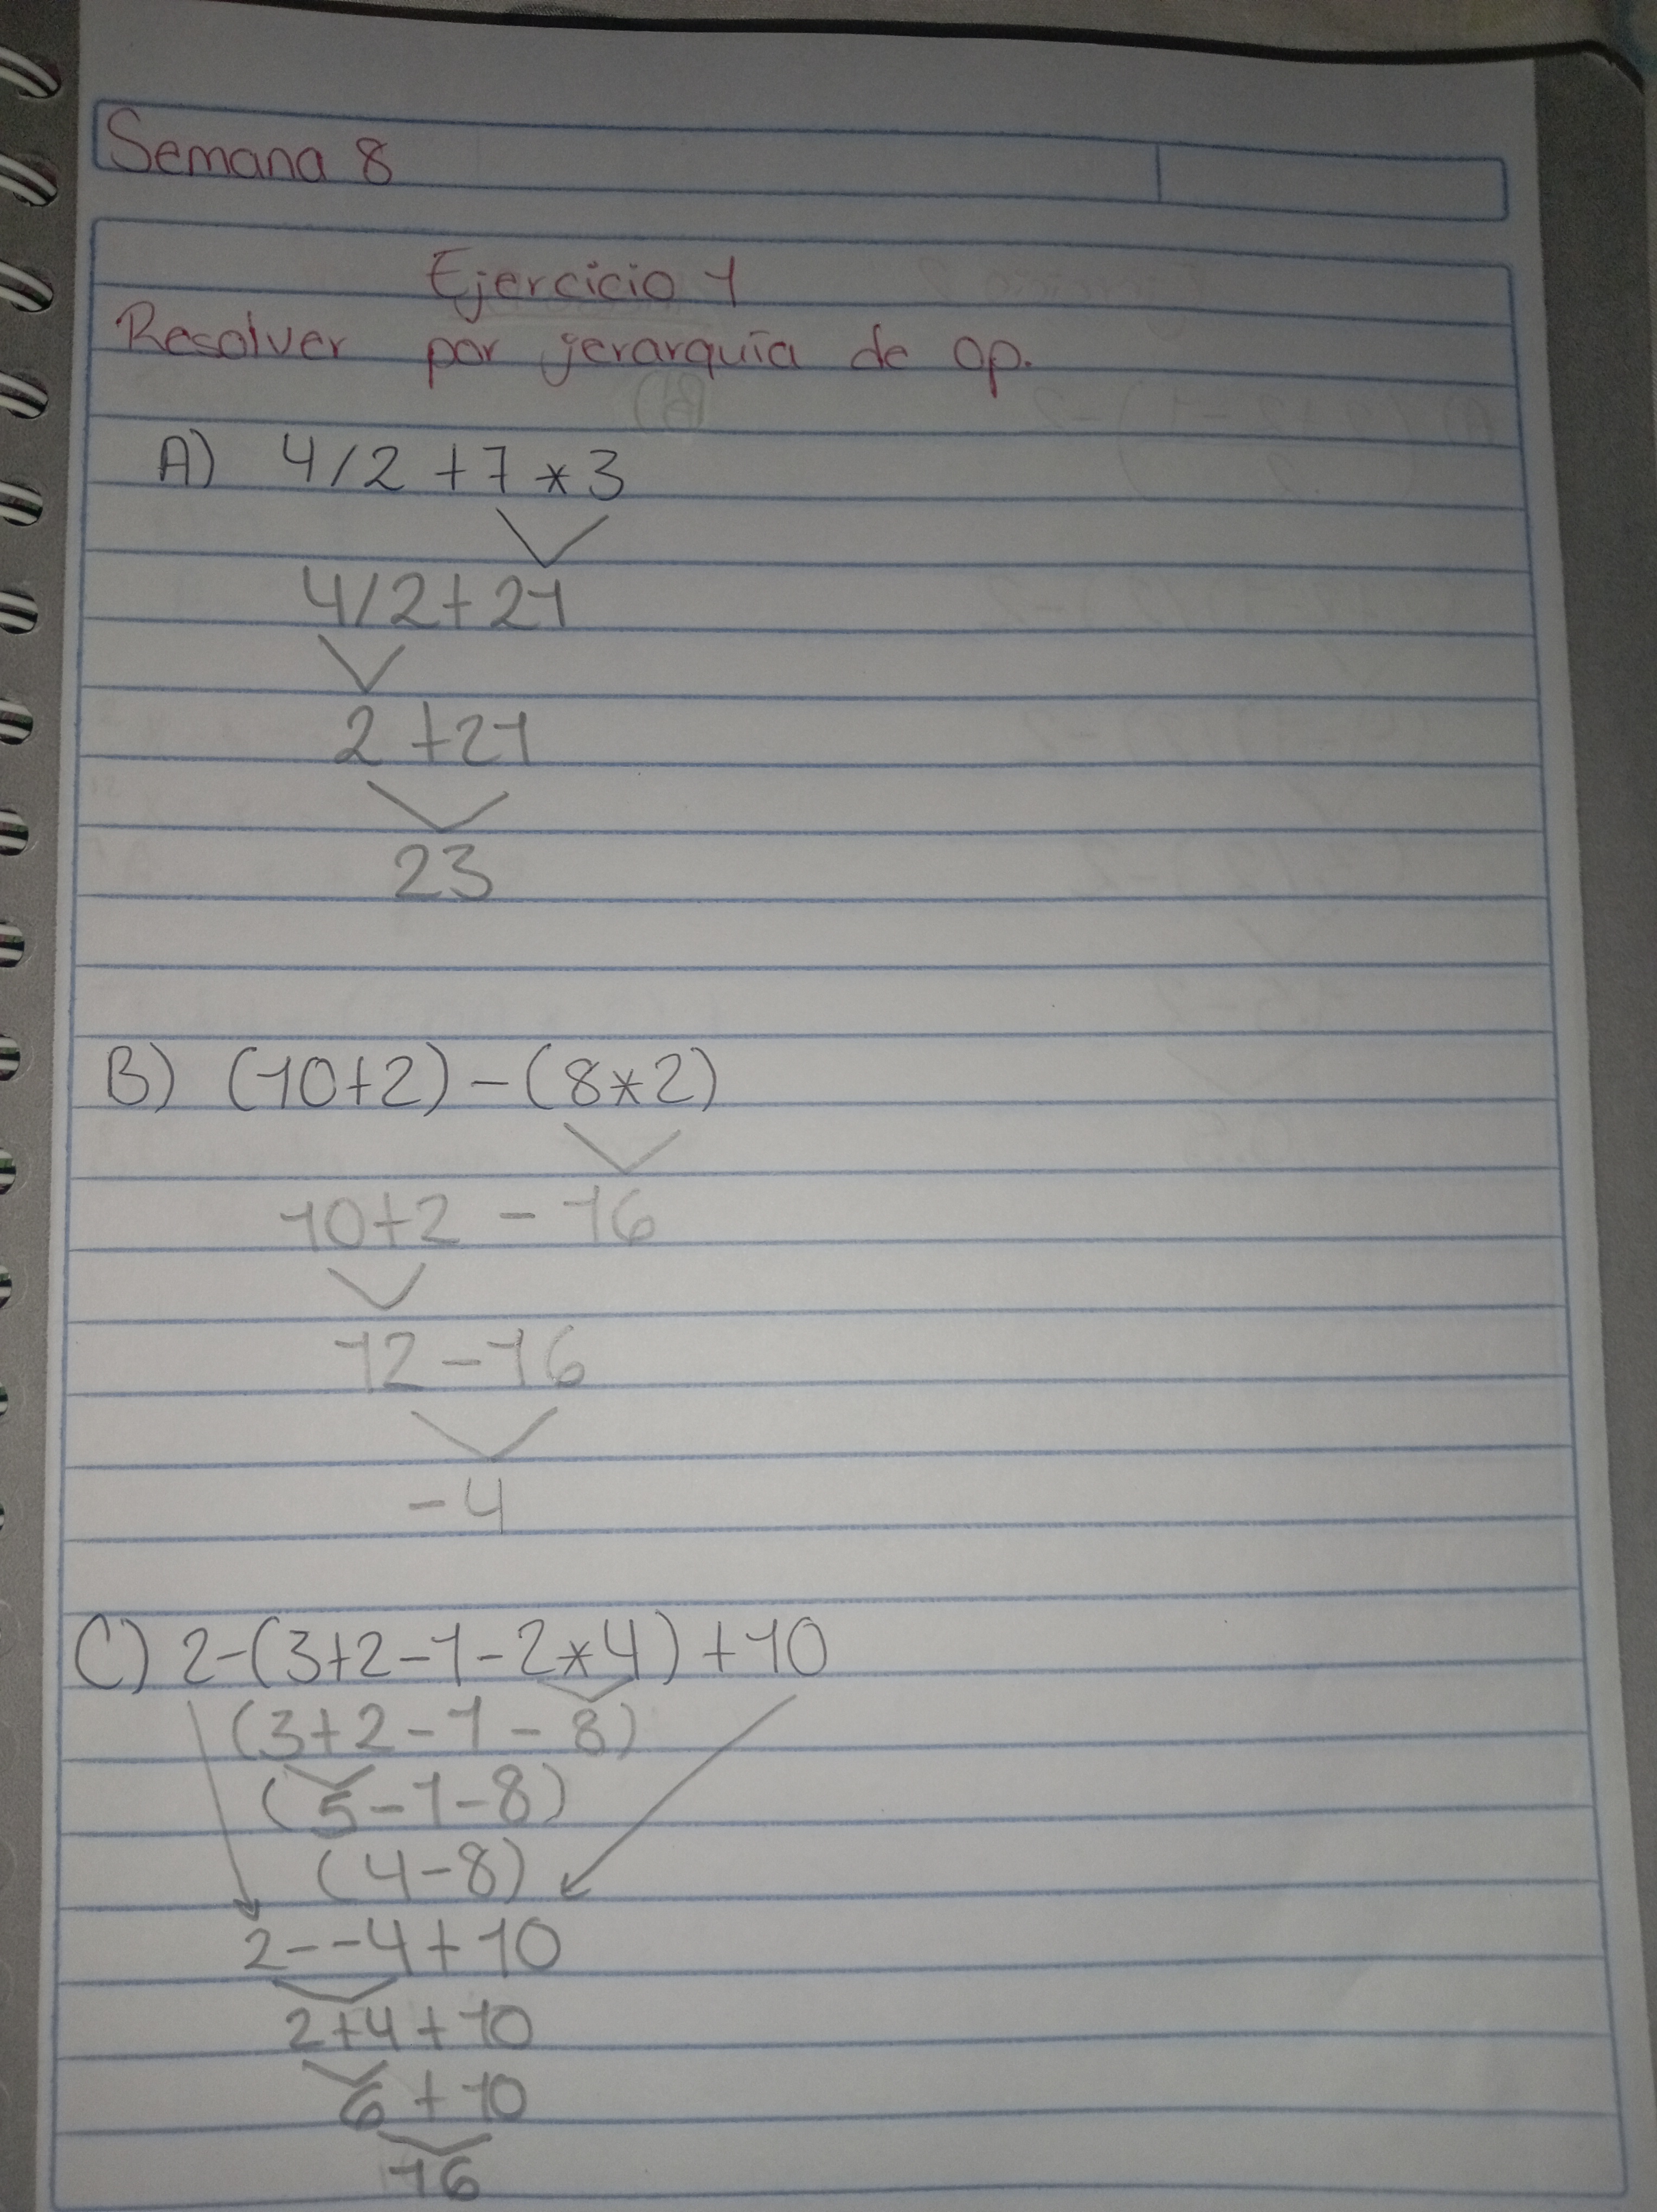 Semana 8
Ejercicio 1
Resolver por jerarquía de op.
A) 4/2+7*3
4/2+21
2+21
23
B) (10+2)-(8*2)
10+2-16
12-16
-4
C) 2-(3+2-1-2*4)+10
(3+2-1-8)
(5-1-8)
(4-8)
2--4+10
2+4+10
6+10
16